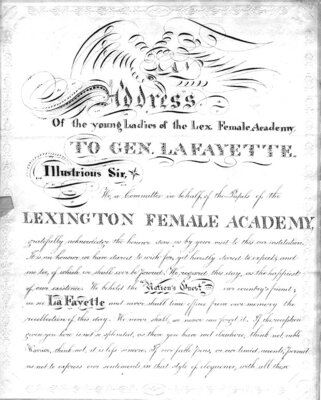 Address
Of the young Ladies of the Lex. Female Academy
TO GEN. LA FAYETTE.
Illustrious Sir,
We, a Committee in behalf of the Pupils of the
LEXINGTON FEMALE ACADEMY,
gratefully acknowledge the honour done us by your visit to this our institution.
It is an honour we have dared to wish for, yet hardly dared to expect; and
one too, of which we shall ever be proud. We regard this day, as the happiest
of our existence. We behold the Nation's Guest our country's friend;
we see La Fayette and never shall time efface from our memory the
recollection of this day. We never shall, we never can forget it. If the reception
given you here is not so splendid, as those you have met elsewhere, think not noble
Warrior, think not, it is less sincere. If our feeble pens, or our timid accents, permit
us not to express our sentiments in that style of eloquence, with all those